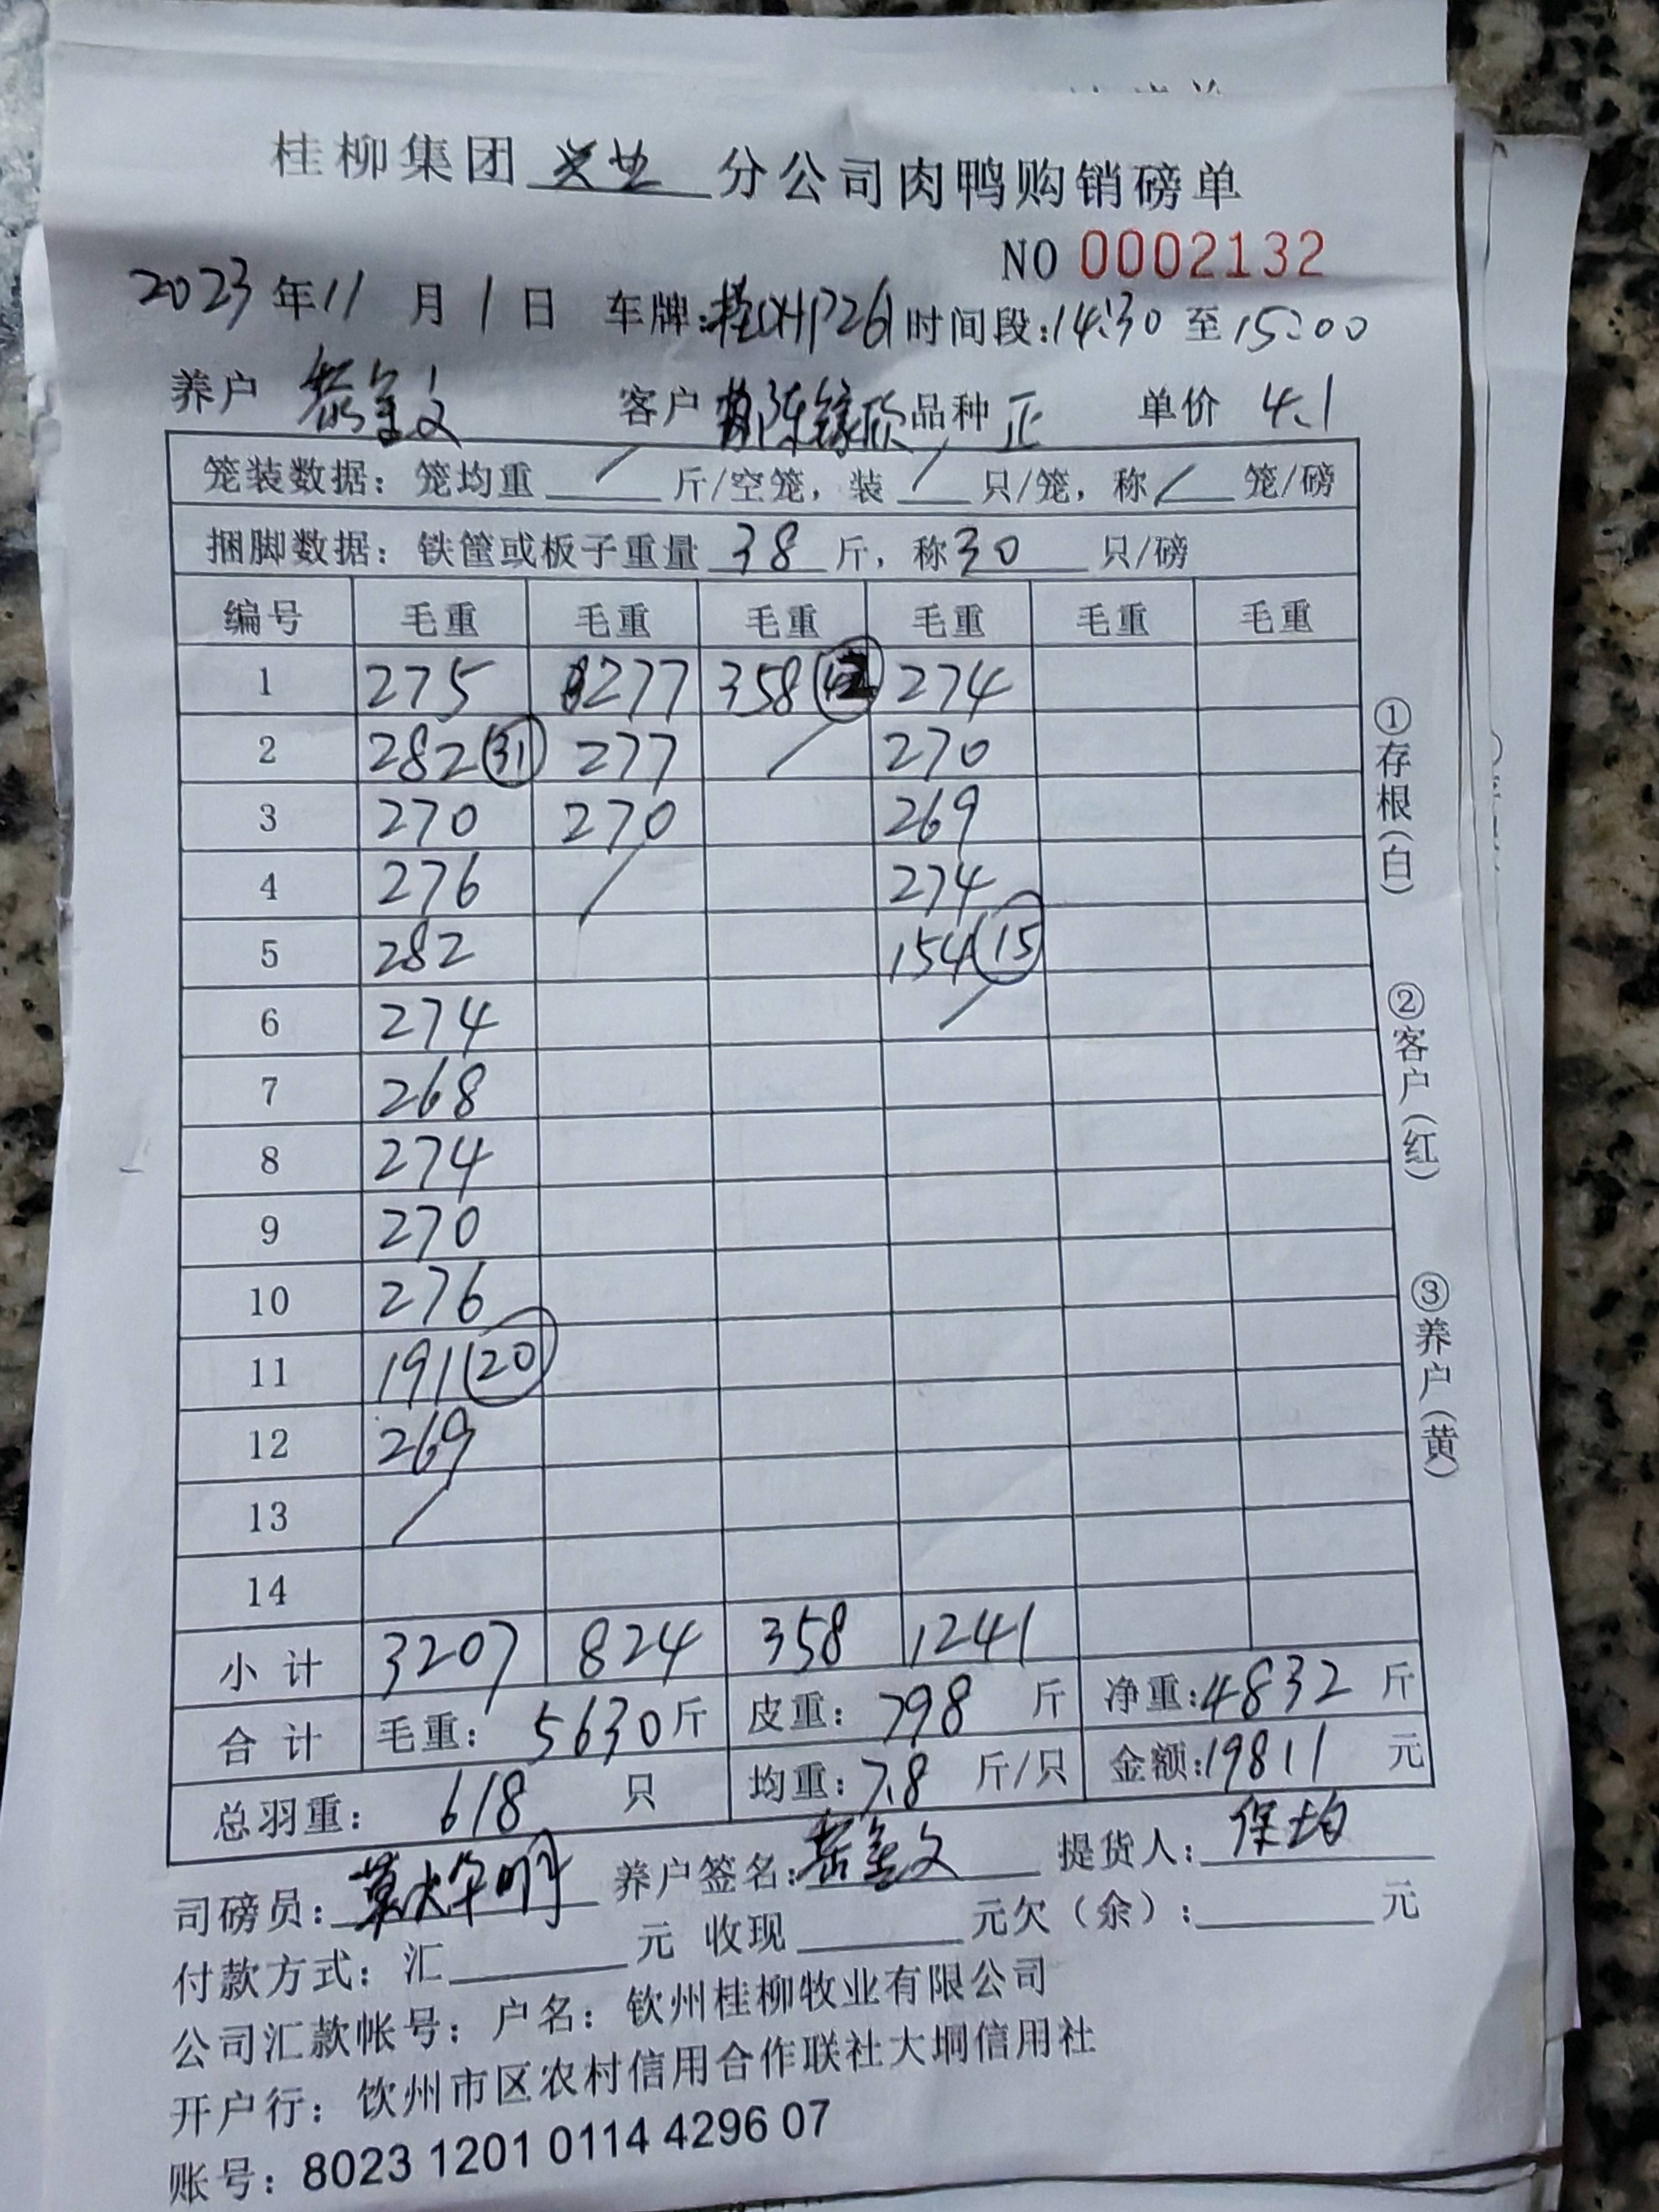 桂柳集团 兴业 分公司肉鸭购销磅单
NO 0002132
2023年11月1日 车牌: 时间段:14:30至15:00
养户 客户 品种 正 单价 4.1
笼装数据：笼均重 / 斤/空笼，装 / 只/笼，称 / 笼/磅
捆脚数据：铁筐或板子重量 38 斤，称30 只/磅
编号 毛重 毛重 毛重 毛重 毛重 毛重
1 275 277 358 274
2 282 (31) 277 / 270
3 270 270 269
4 276 / 274
5 282 154 (15)
6 274 /
7 268
8 274
9 270
10 276
11 191 (20)
12 269
13 /
14
小计 3207 824 358 1241
合计 毛重：5630斤 皮重：798斤 净重:4832斤
总羽重：618只 均重:7.8斤/只 金额:19811元
司磅员: 养户签名: 提货人: 保均
付款方式：汇 元 收现 元欠（余）: 元
公司汇款帐号：户名：钦州桂柳牧业有限公司
开户行：钦州市区农村信用合作联社大垌信用社
账号：8023 1201 0114 4296 07
①存根(白)
②客户(红)
③养户(黄)